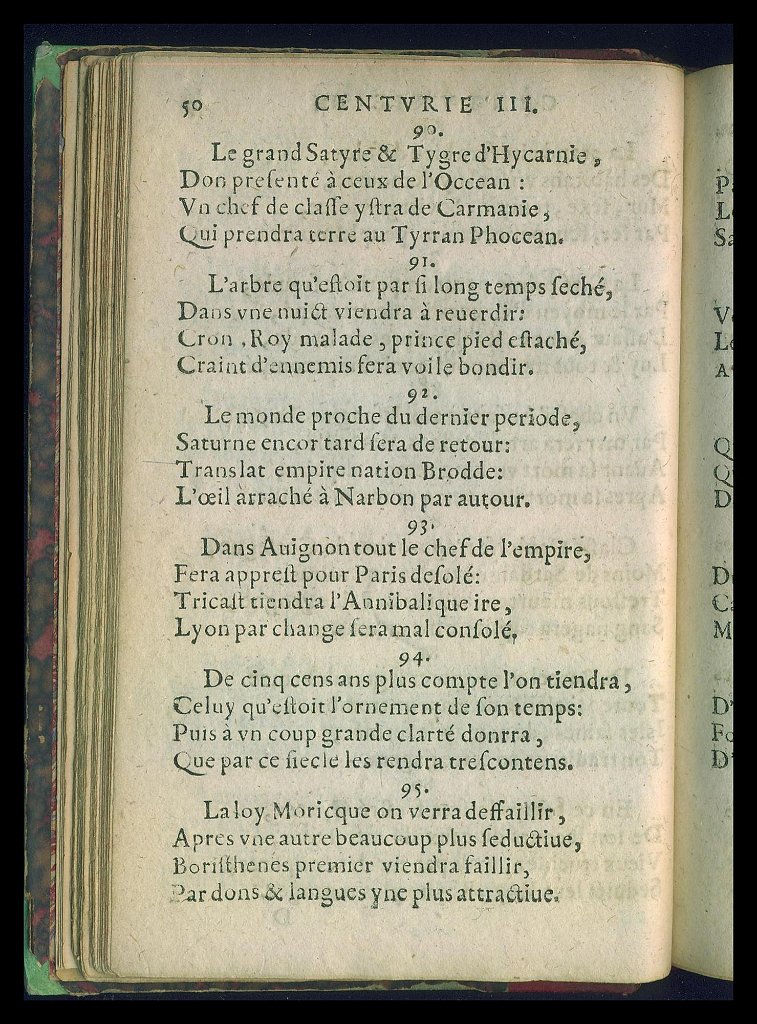 50 CENTVRIE III.
90.
Le grand Satyre & Tygre d'Hycarnie,
Don preſenté à ceux de l'Occean :
Vn chef de claſſe yſtra de Carmanie,
Qui prendra terre au Tyrran Phocean.
91.
L'arbre qu'eſtoit par ſi long temps ſeché,
Dans vne nuict viendra à reuerdir:
Cron , Roy malade , prince pied eſtaché,
Craint d'ennemis fera voile bondir.
92.
Le monde proche du dernier periode,
Saturne encor tard ſera de retour:
Translat empire nation Brodde:
L'œil arraché à Narbon par autour.
93.
Dans Auignon tout le chef de l'empire,
Fera appreſt pour Paris deſolé:
Tricaſt tiendra l'Annibalique ire,
Lyon par change ſera mal conſolé,
94.
De cinq cens ans plus compte l'on tiendra,
Celuy qu'eſtoit l'ornement de ſon temps:
Puis à vn coup grande clarté donrra,
Que par ce ſiecle les rendra treſcontens.
95.
La loy Moricque on verra deffaillir,
Apres vne autre beaucoup plus ſeductiue,
Boriſthenes premier viendra faillir,
Par dons & langues yne plus attractiue.